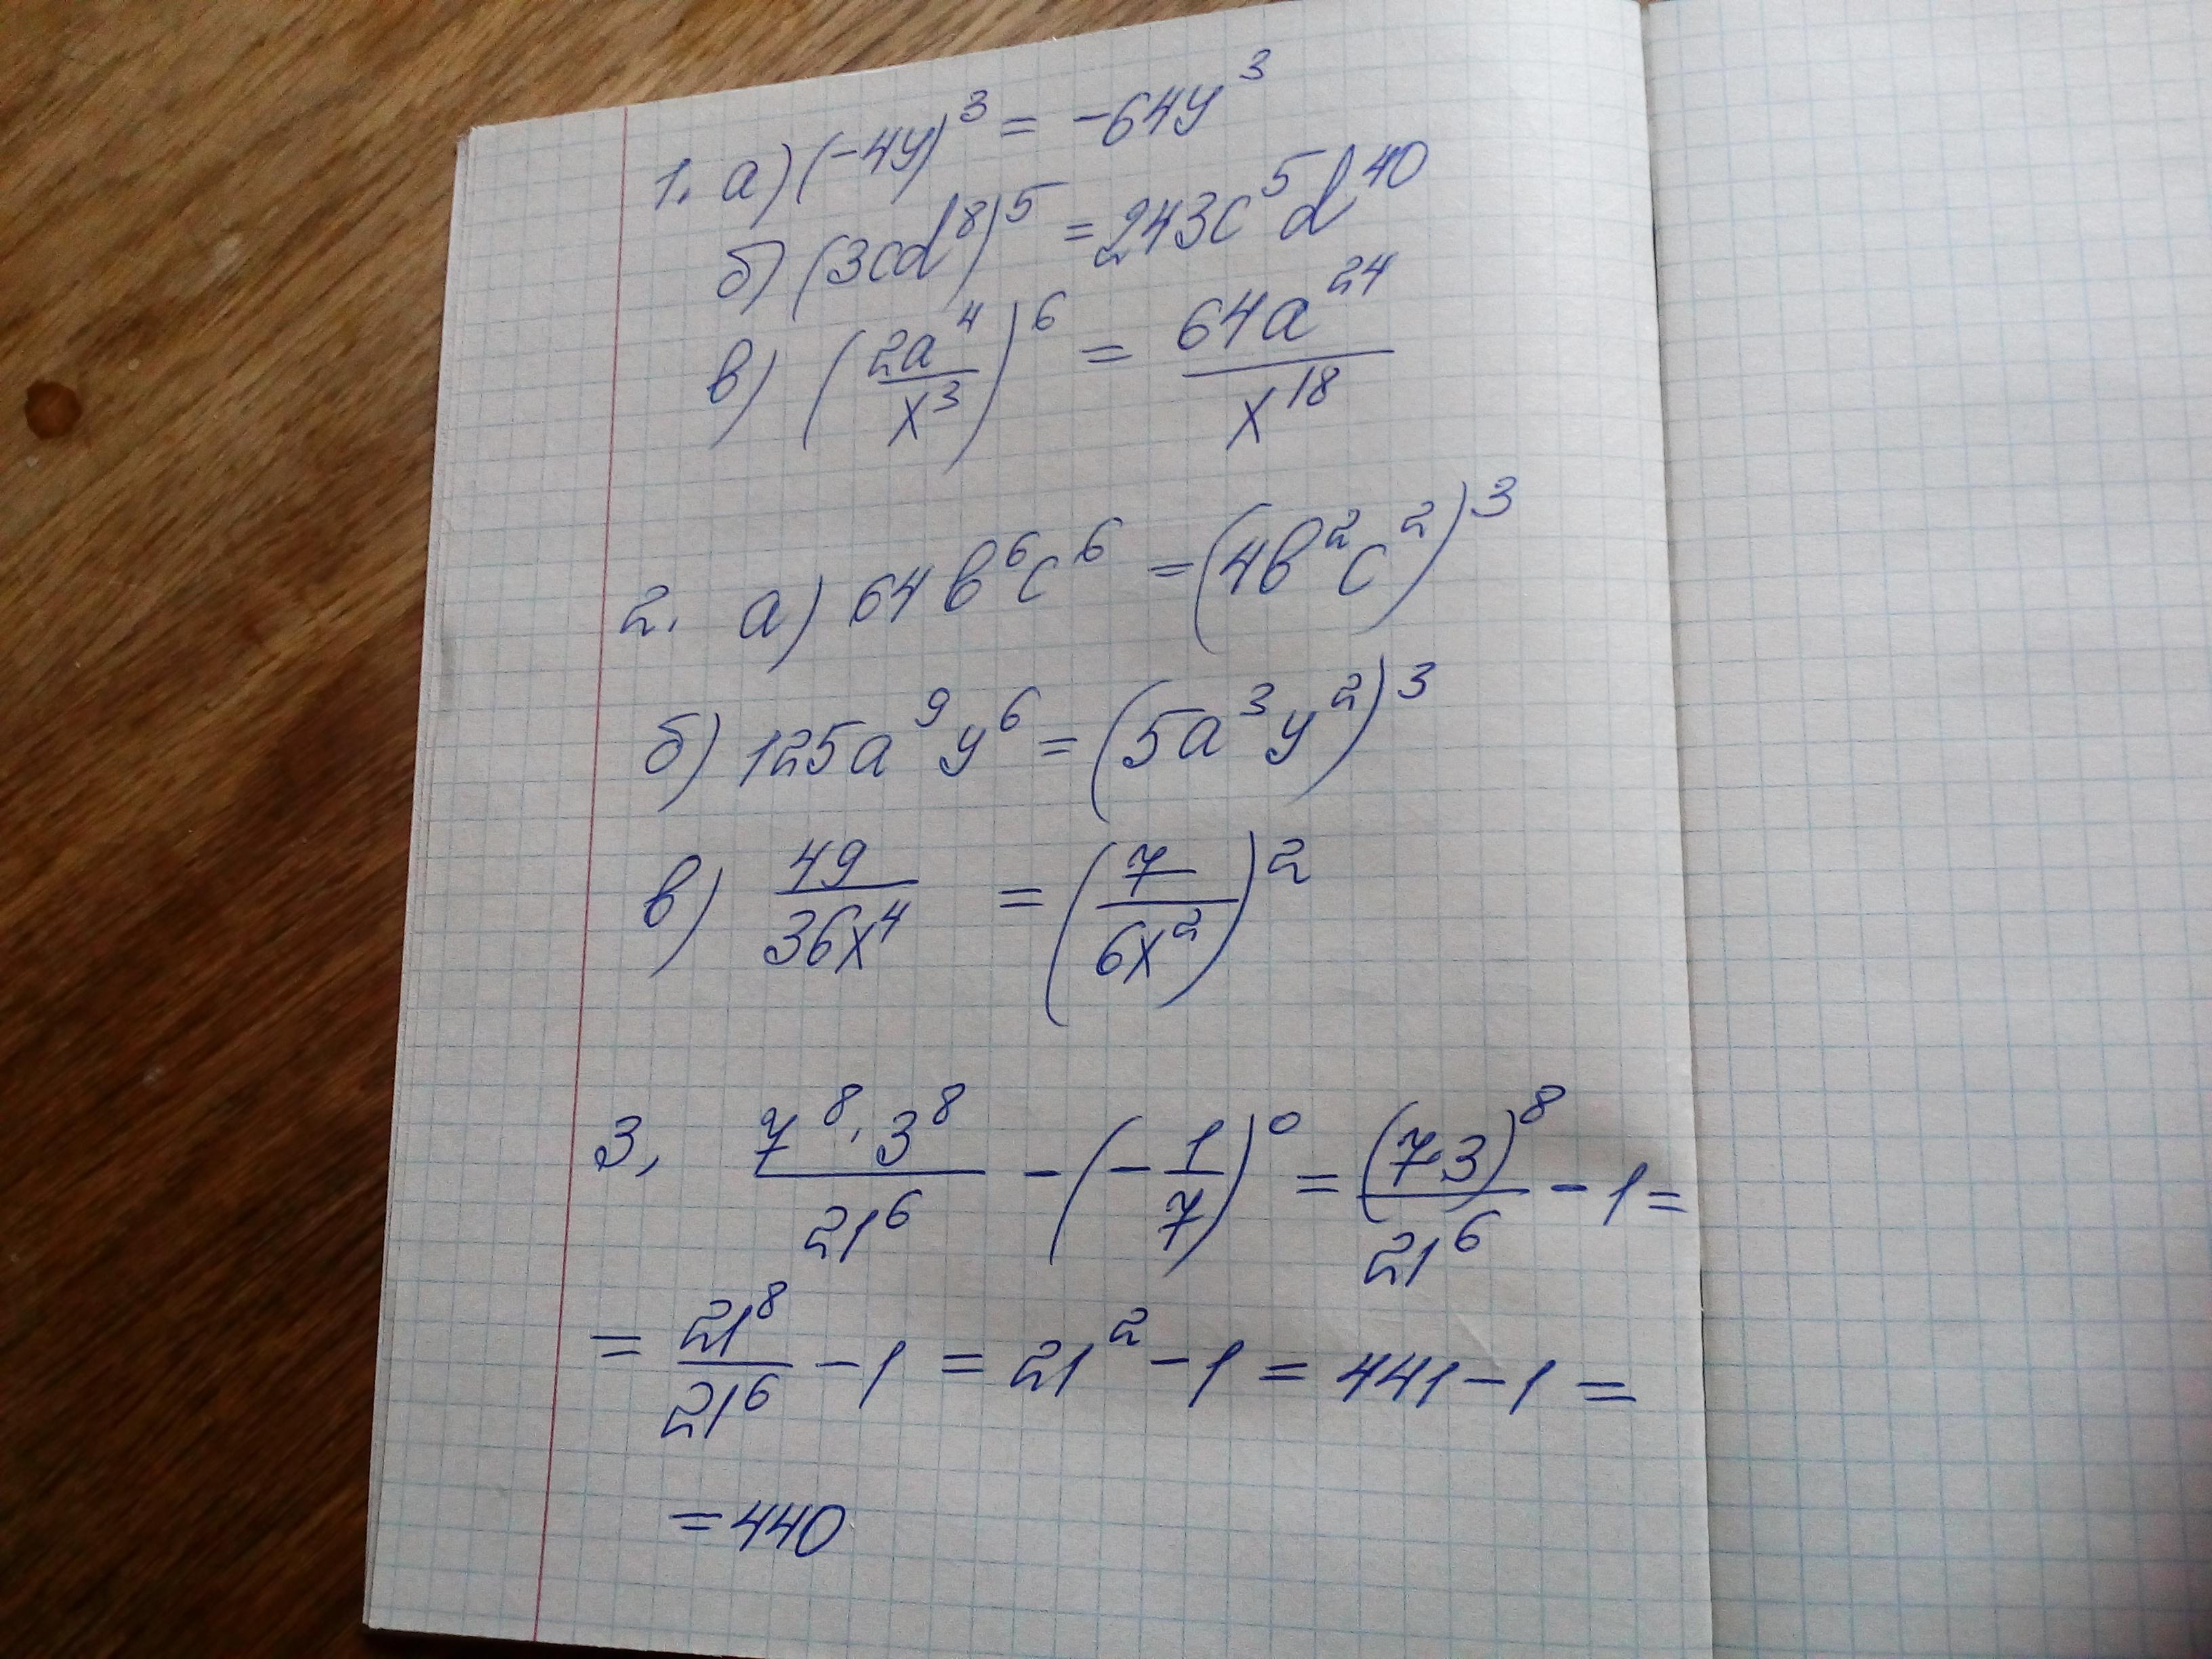 1. а) (-4y)³ = -64y³
б) (3cd⁸)⁵ = 243c⁵d⁴⁰
в) (2a⁴/x³)⁶ = 64a²⁴/x¹⁸
2. а) 64b⁶c⁶ = (4b²c²)³
б) 125a⁹y⁶ = (5a³y²)³
в) 49/36x⁴ = (7/6x²)²
3. 7⁸·3⁸/21⁶ - (-1/7)⁰ = (7·3)⁸/21⁶ - 1 =
= 21⁸/21⁶ - 1 = 21² - 1 = 441 - 1 =
= 440